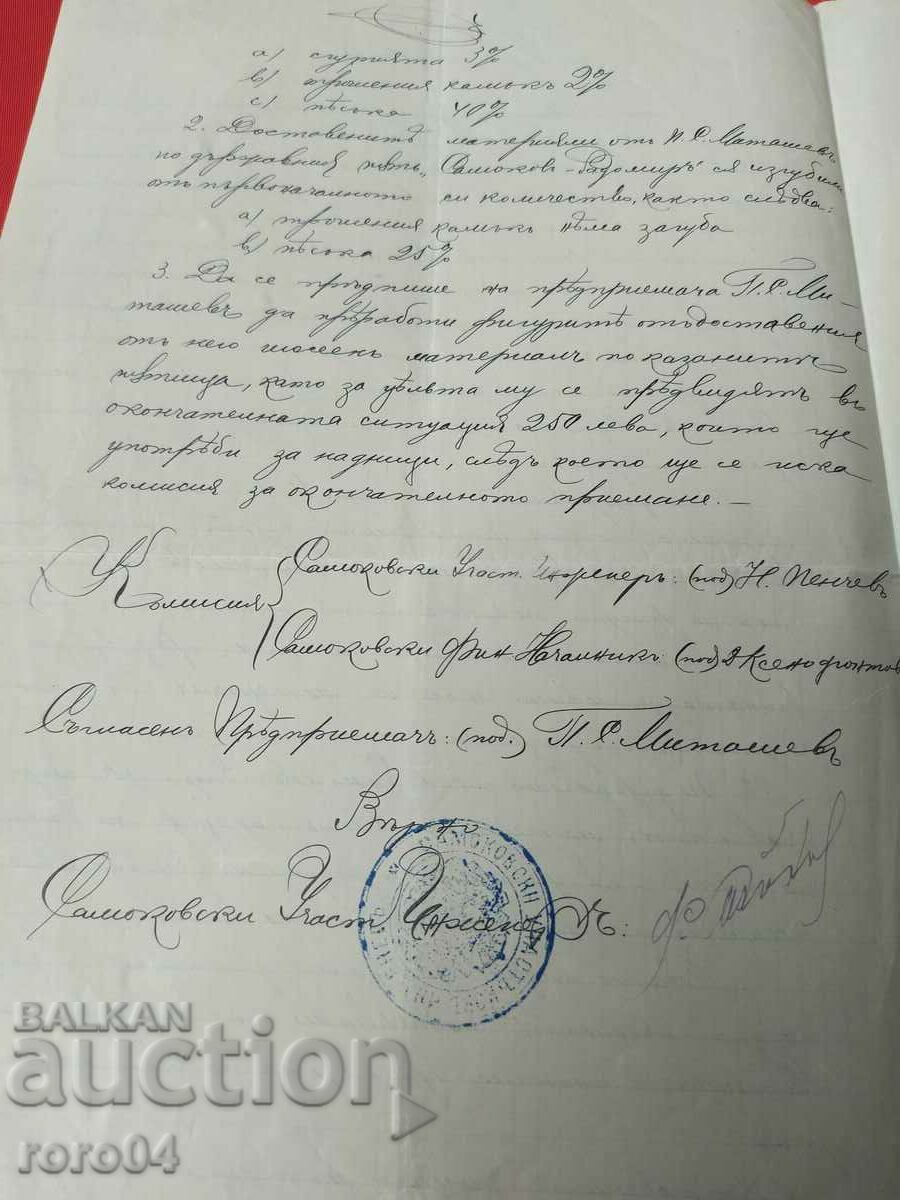 а) сгурията 3%
в) трошения камъкъ 2%
с) пѣсъка 40%
2. Доставенитѣ материяли от П. С. Миташевъ
по държавния пѫть „Самоков-Радомиръ" ся изгубили
отъ първоначалното си количество, както слѣдва:
а) трошения камъкъ нѣма загуба
в) пѣсъка 25%
3. Да се прѣдпише на прѣдприемача П. С. Ми-
ташевъ да прѣработи фигуритѣ отъ доставения
отъ него шосеенъ материалъ по казанитѣ
пѫтища, като за цѣльта му се прѣдвидятъ въ
окончателната ситуация 250 лева, които ще
употрѣби за надници, слѣдъ което ще се иска
комисия за окончателното приемане.—
Комисия
Самоковски Участ. Инженеръ: (под) Н. Пенчевъ
Самоковски Фин. Началникъ: (под) Д. Ксенофонтов
Съгласенъ Прѣдприемачъ: (под.) П. С. Миташевъ
Вѣрно
Самоковски Участ. Инженеръ:
САМОКОВСКИ УЧАСТ
BALKAN
auction
roro04